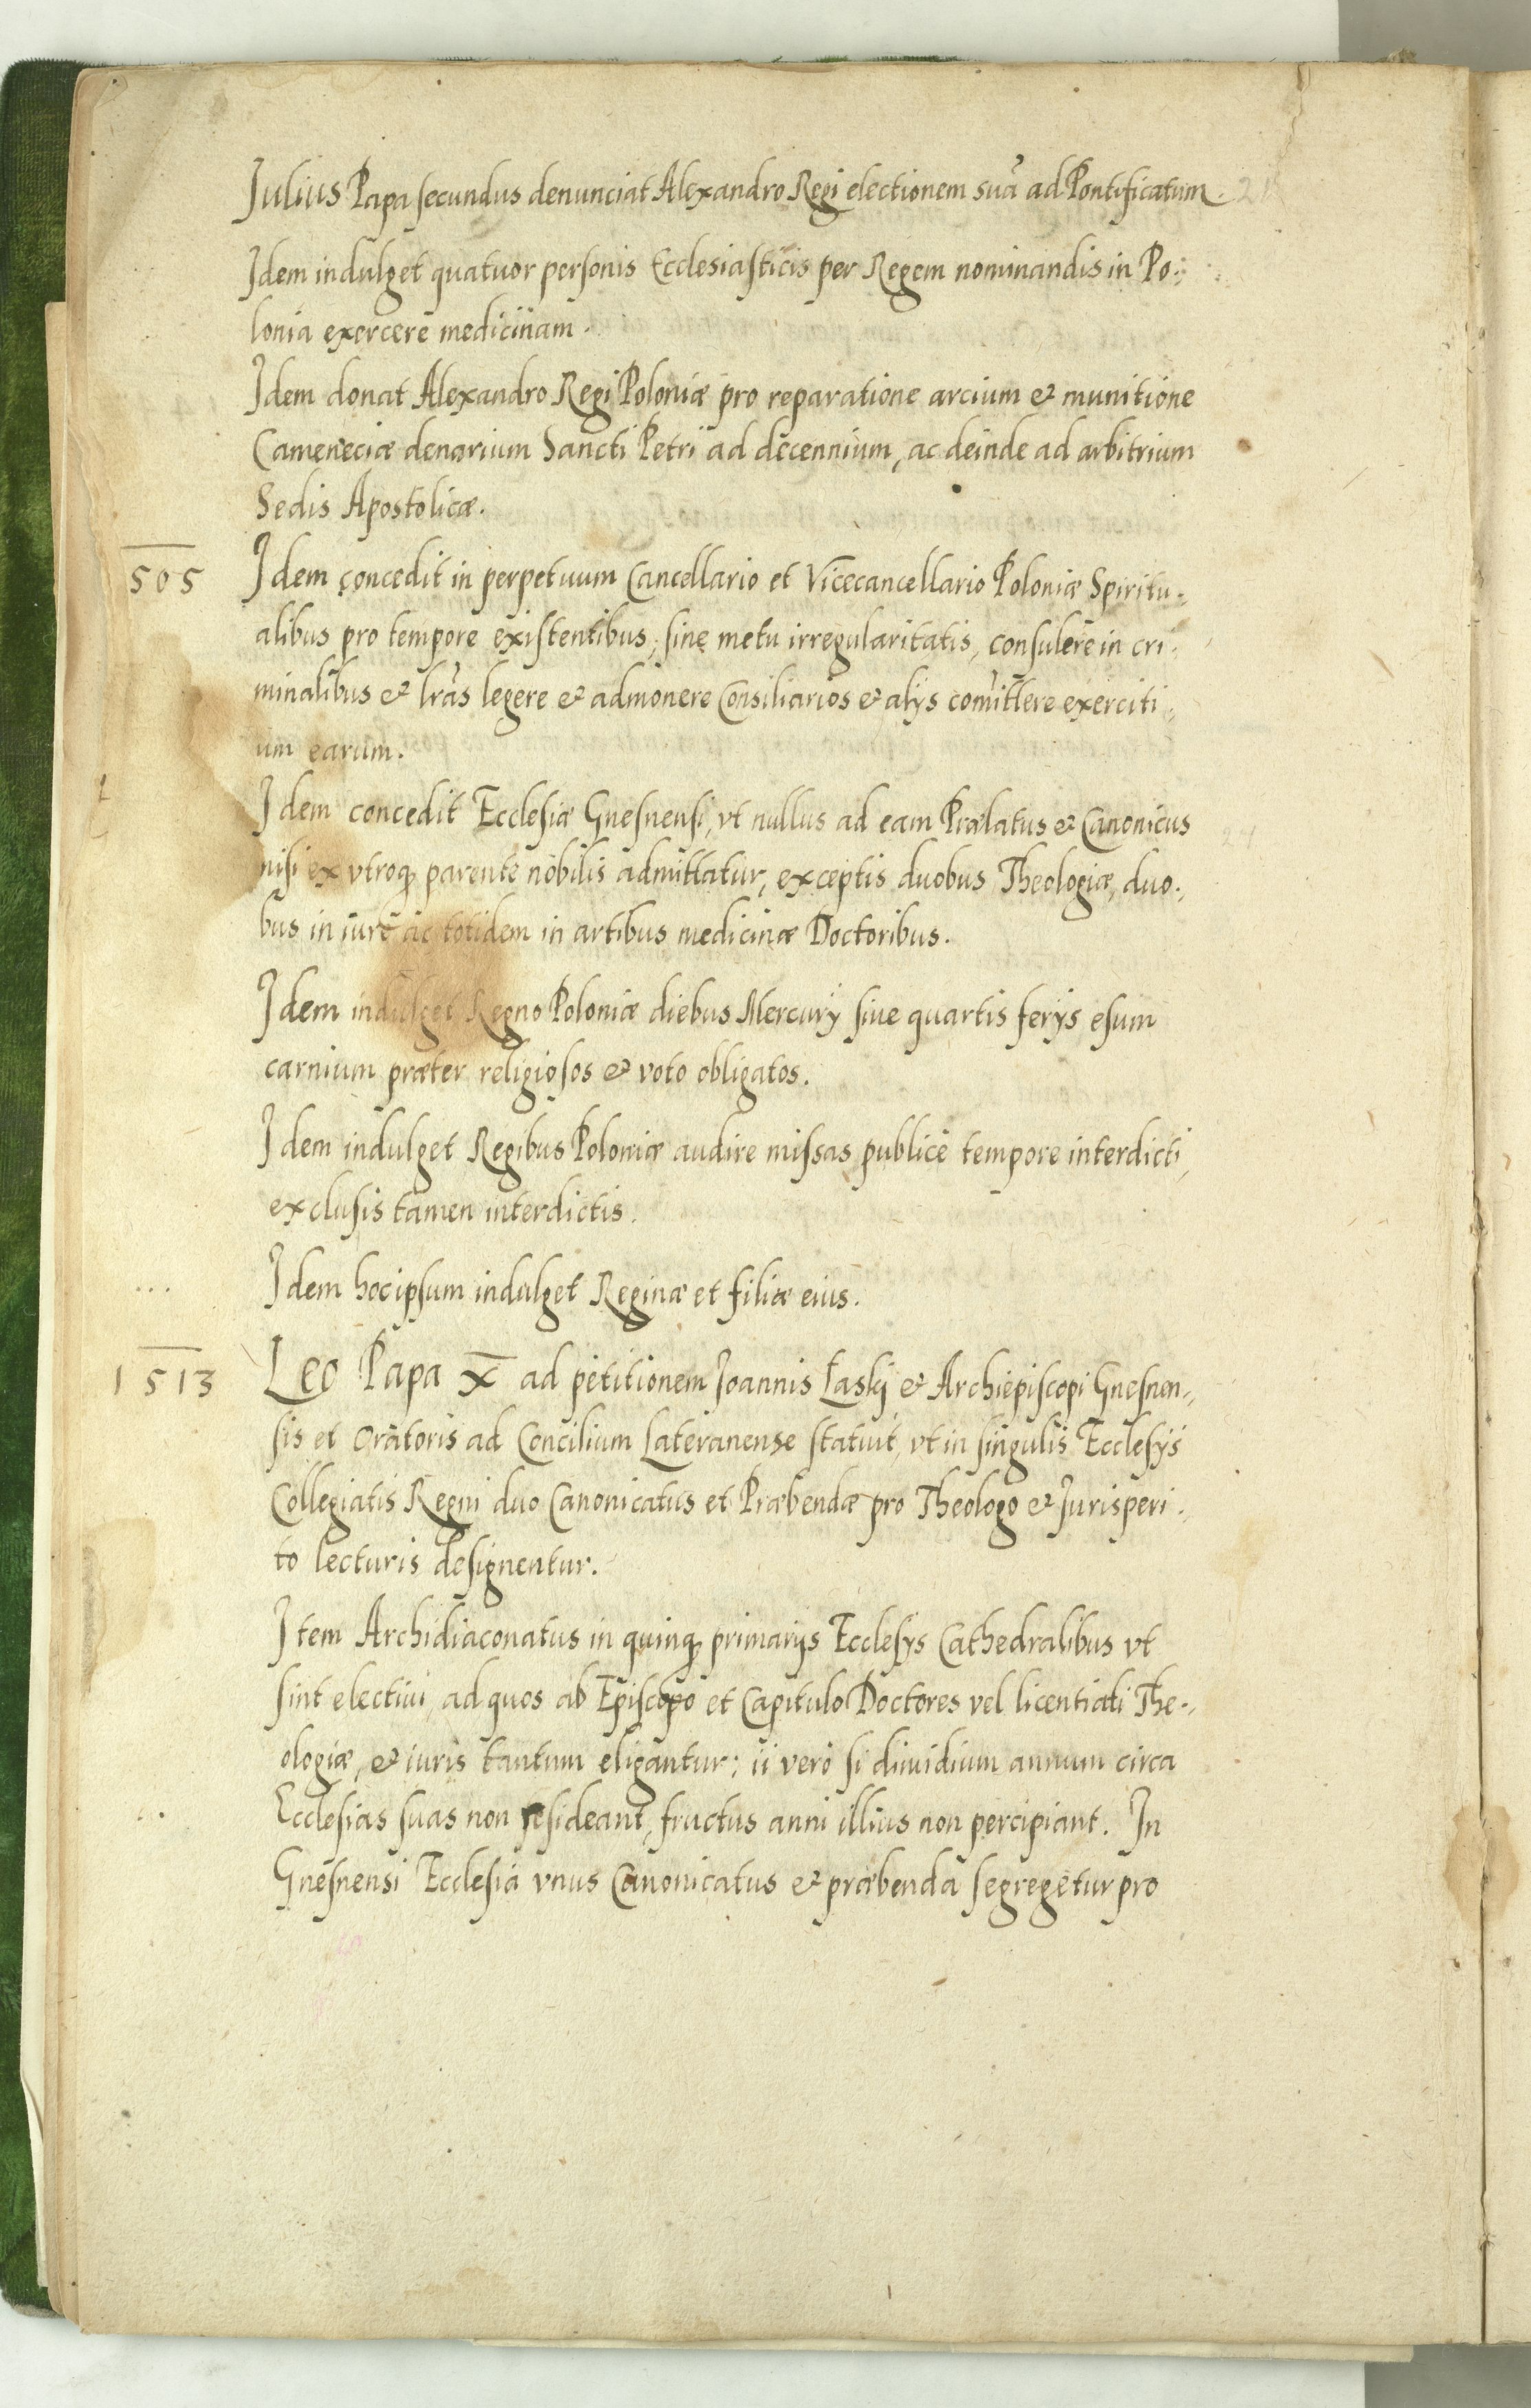 Julius Papa secundus denunciat Alexandro Regi electionem suã ad Pontificatum.
Idem indulget quatuor personis Ecclesiasticis per Regem nominandis in Po-
lonia exercere medicinam.
Idem donat Alexandro Regi Poloniæ pro reparatione arcium & munitione
Cameneciæ denarium Sancti Petri ad decennium, ac deinde ad arbitrium
Sedis Apostolicæ.
505 Idem concedit in perpetuum Cancellario et Vicecancellario Poloniæ Spiritu-
alibus pro tempore existentibus, sine metu irregularitatis, consulere in cri-
minalibus & lrãs legere & admonere Consiliarios & alijs comittere exerciti-
um earum.
Idem concedit Ecclesiæ Gnesnensi, vt nullus ad eam Prælatus & Canonicus
nisi ex vtroq parente nobilis admittatur, exceptis duobus Theologiæ, duo-
bus in iure ac totidem in artibus medicinæ Doctoribus.
Idem indulget Regno Poloniæ diebus Mercurij siue quartis ferijs esum
carnium præter religiosos & voto obligatos.
Idem indulget Regibus Poloniæ audire missas publicè tempore interdicti,
exclusis tamen interdictis.
Idem hoc ipsum indulget Reginæ et filiæ eius.
1513 Leo Papa X ad petitionem Joannis Łaskj & Archiepiscopi Gnesnen-
sis et Oratoris ad Concilium Lateranense statuit, vt in singulis Ecclesijs
Collegiatis Regni duo Canonicatus et Præbendæ pro Theologo & Jurisperi-
to lecturis designentur.
Item Archidiaconatus in quinq primarijs Ecclesijs Cathedralibus vt
sint electiui, ad quos ab Episcopo et Capitulo Doctores vel licentiati The-
ologiæ, & iuris tantum eligantur; ij verò si dimidium annum circa
Ecclesias suas non resideant, fructus anni illius non percipiant. In
Gnesnensi Ecclesia vnus Canonicatus & præbenda segregetur pro